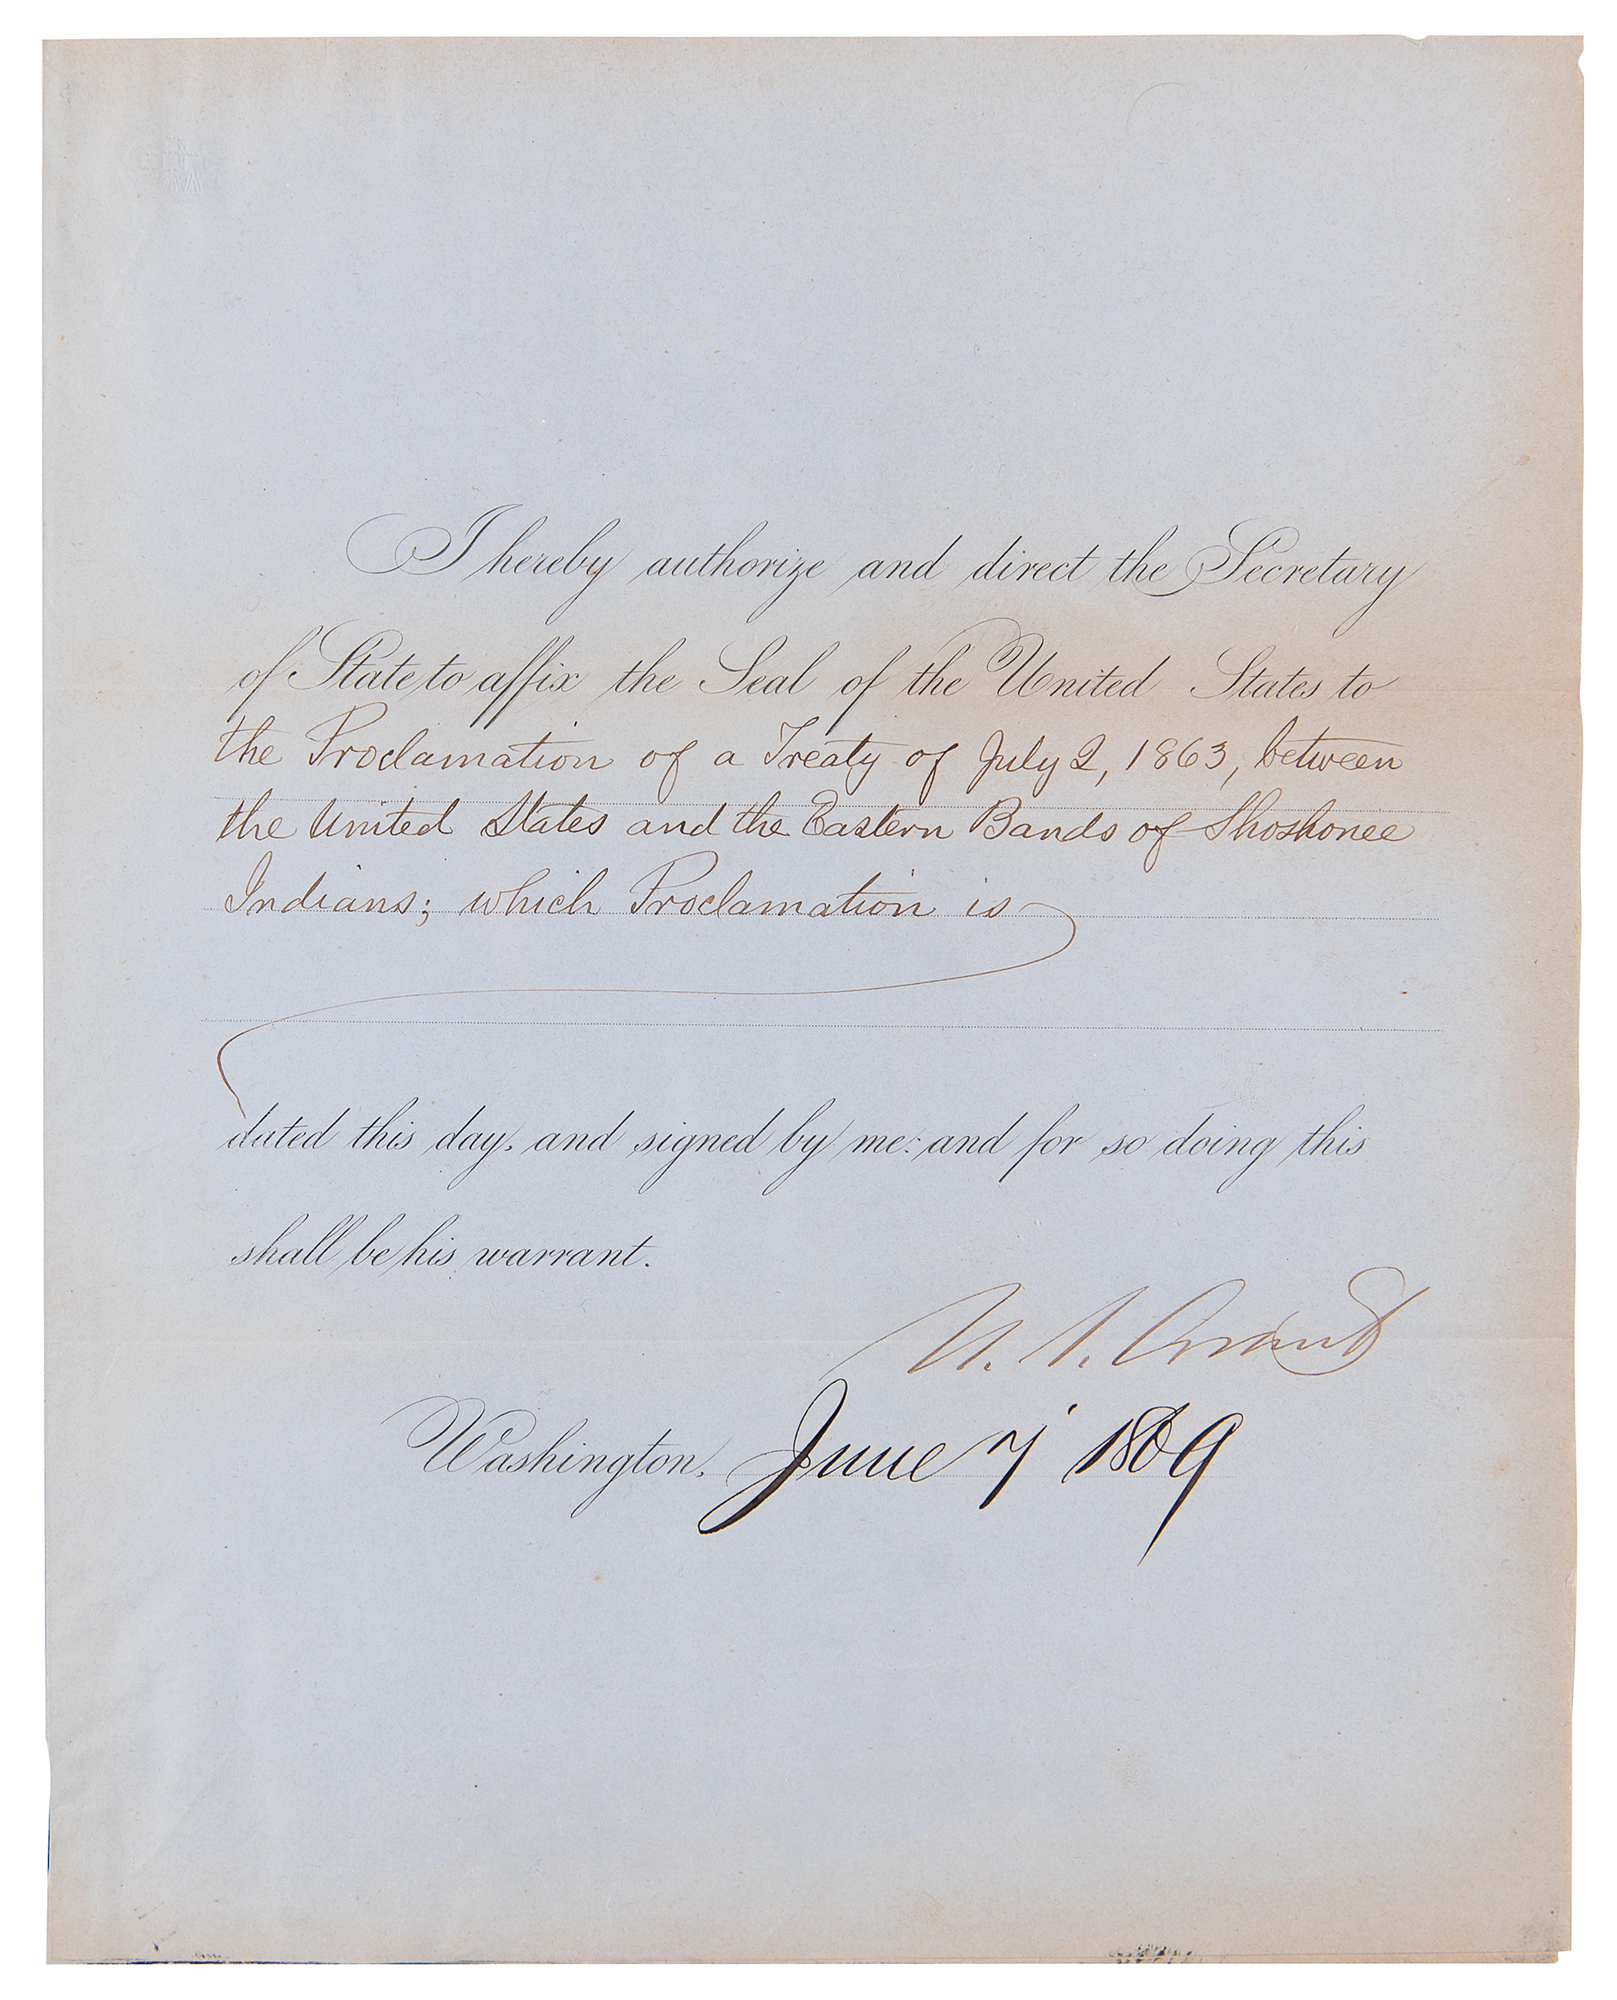 I hereby authorize and direct the Secretary
of State to affix the Seal of the United States to
the Proclamation of a Treaty of July 2, 1863, between
the United States and the Eastern Bands of Shoshonee
Indians; which Proclamation is
dated this day, and signed by me: and for so doing this
shall be his warrant.
U. S. Grant
Washington, June 7 1869